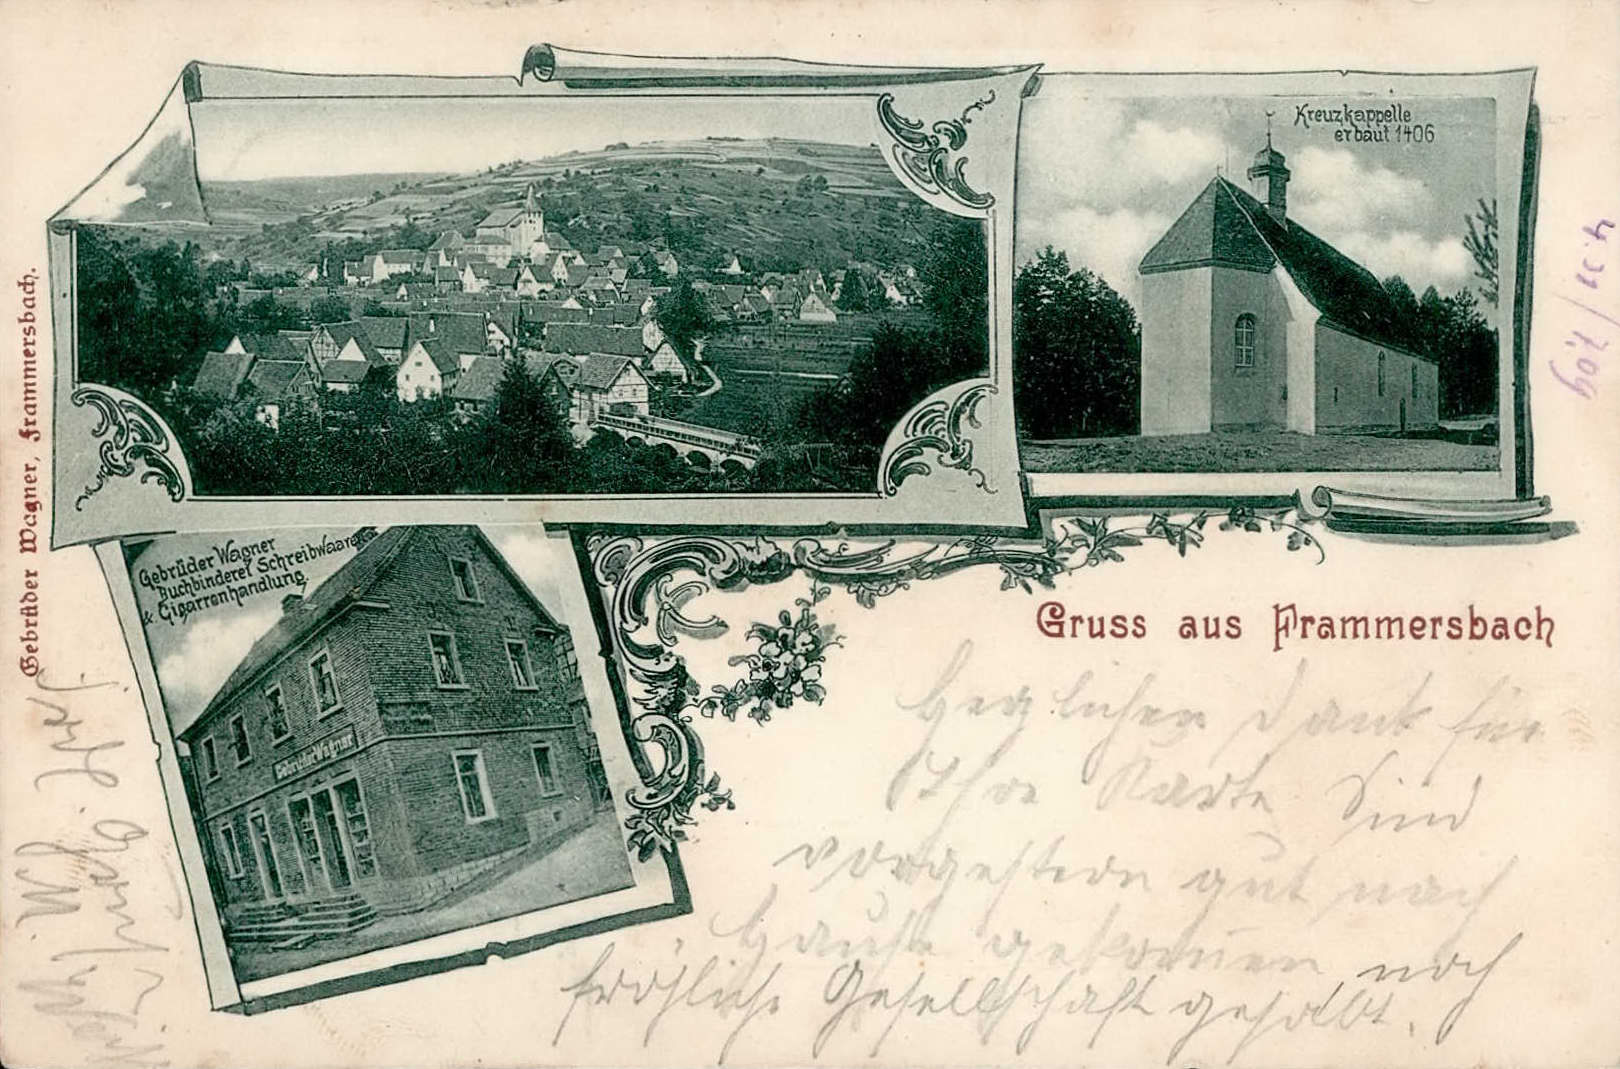 Kreuzkappelle
erbaut 1406
Gebrüder Wagner
Buchbinderei Schreibwaaren
& Cigarrenhandlung.
Gebrüder Wagner
Gruss aus Frammersbach
Gebrüder Wagner, Frammersbach.
Herzlichen Dank für
Ihre Karte Sind
vorgestern gut nach
Hause gekommen, noch
fröhliche Gesellschaft gehabt.